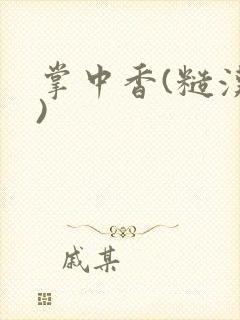 掌中香(糙汉
)
戚某